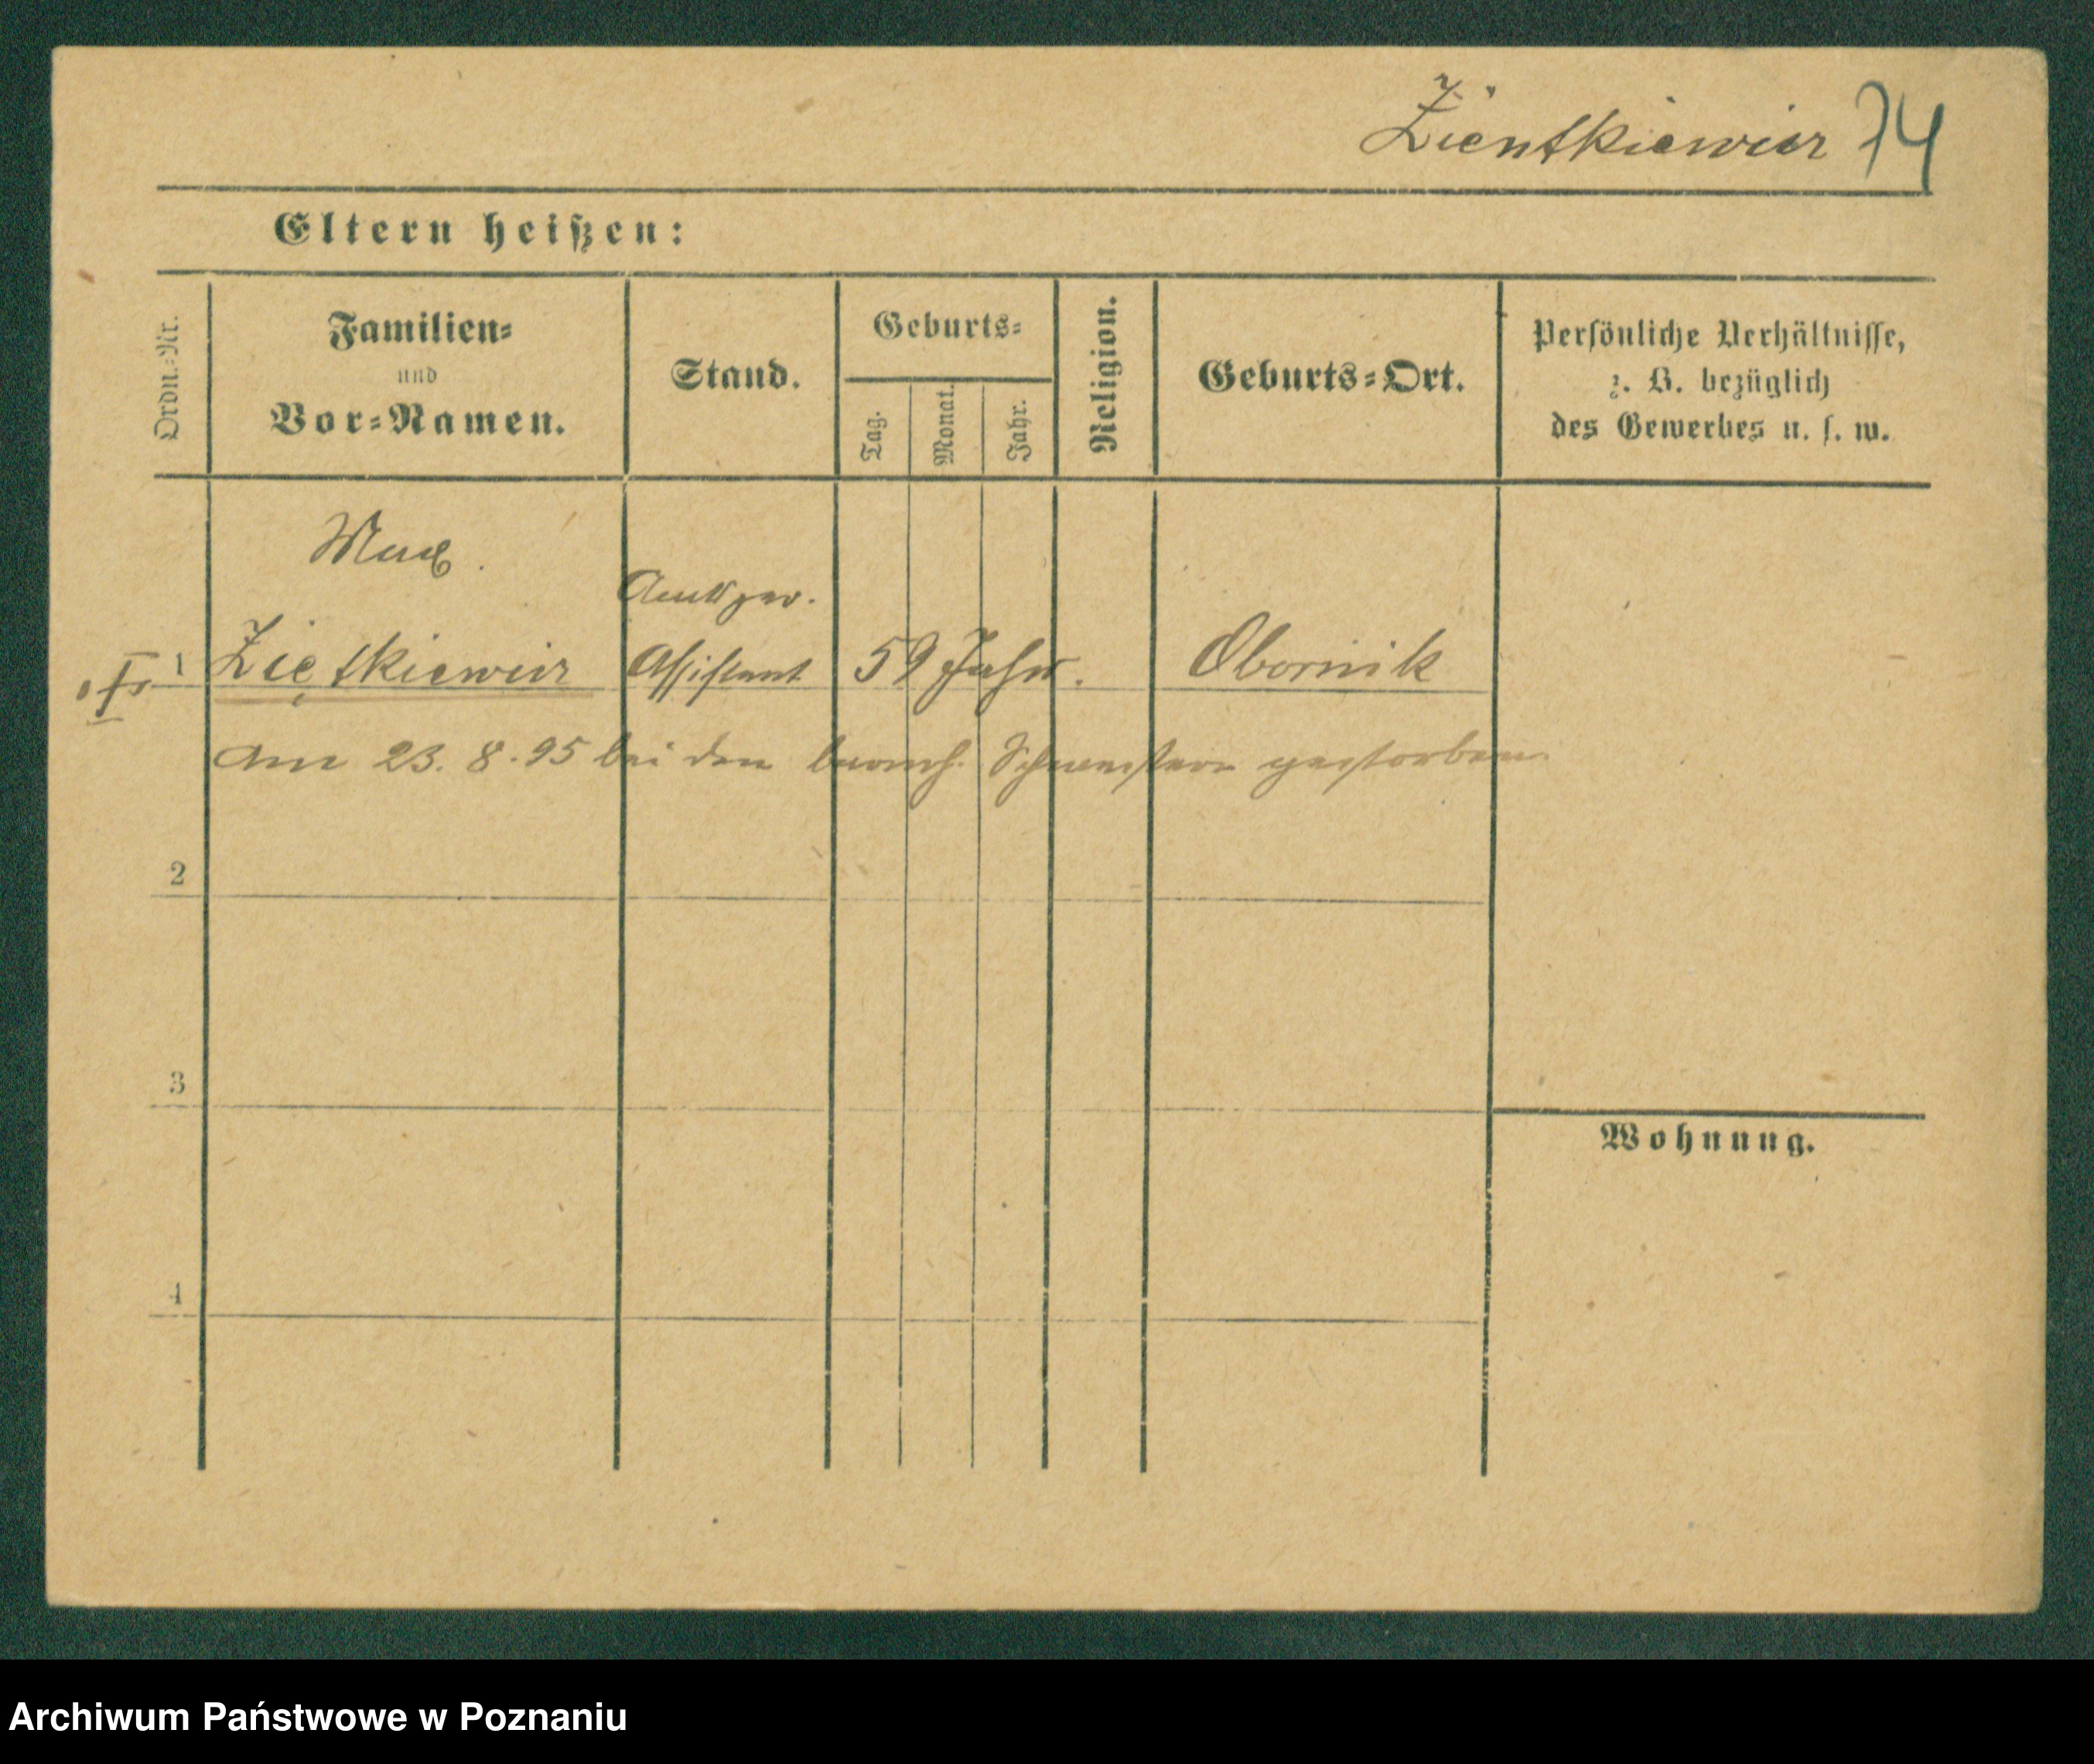 Zientkiewicz 74
Eltern heißen:
Ordn.=Nr.
Familien=
und
Vor=Namen.
Stand.
Geburts=
Tag.
Monat.
Jahr.
Religion.
Geburts=Ort.
Persönliche Verhältnisse,
z. B. bezüglich
des Gewerbes u. s. w.
Max.
Amtsger.
1 Ziętkiewicz Assistent 59 Jahr. Obornik
Am 23. 8. 95 bei den barmh. Schwestern gestorben.
2
3
Wohnung.
4
Archiwum Państwowe w Poznaniu